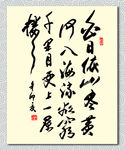 白日依山尽黄
河入海流欲窮
千里目更上一层
楼